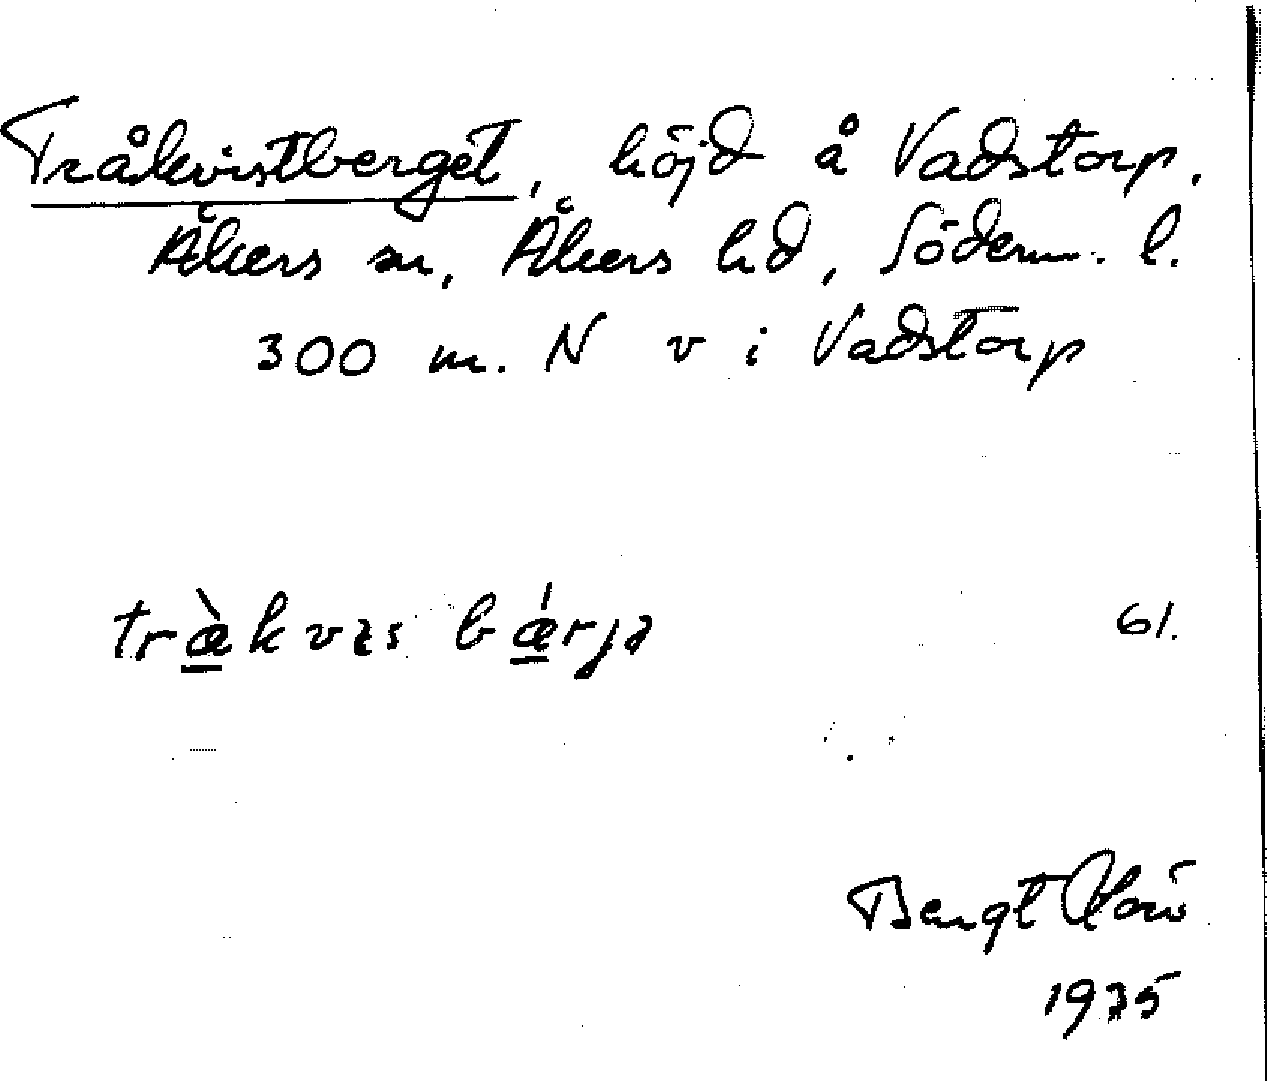 Tråkvistberget, höjd å Vadstorp,
Åkers sn, Åkers hd, Söderm. l.
300 m. N v i Vadstorp
træ̀kvɪs bǽrjə
61.
Bengt
1935